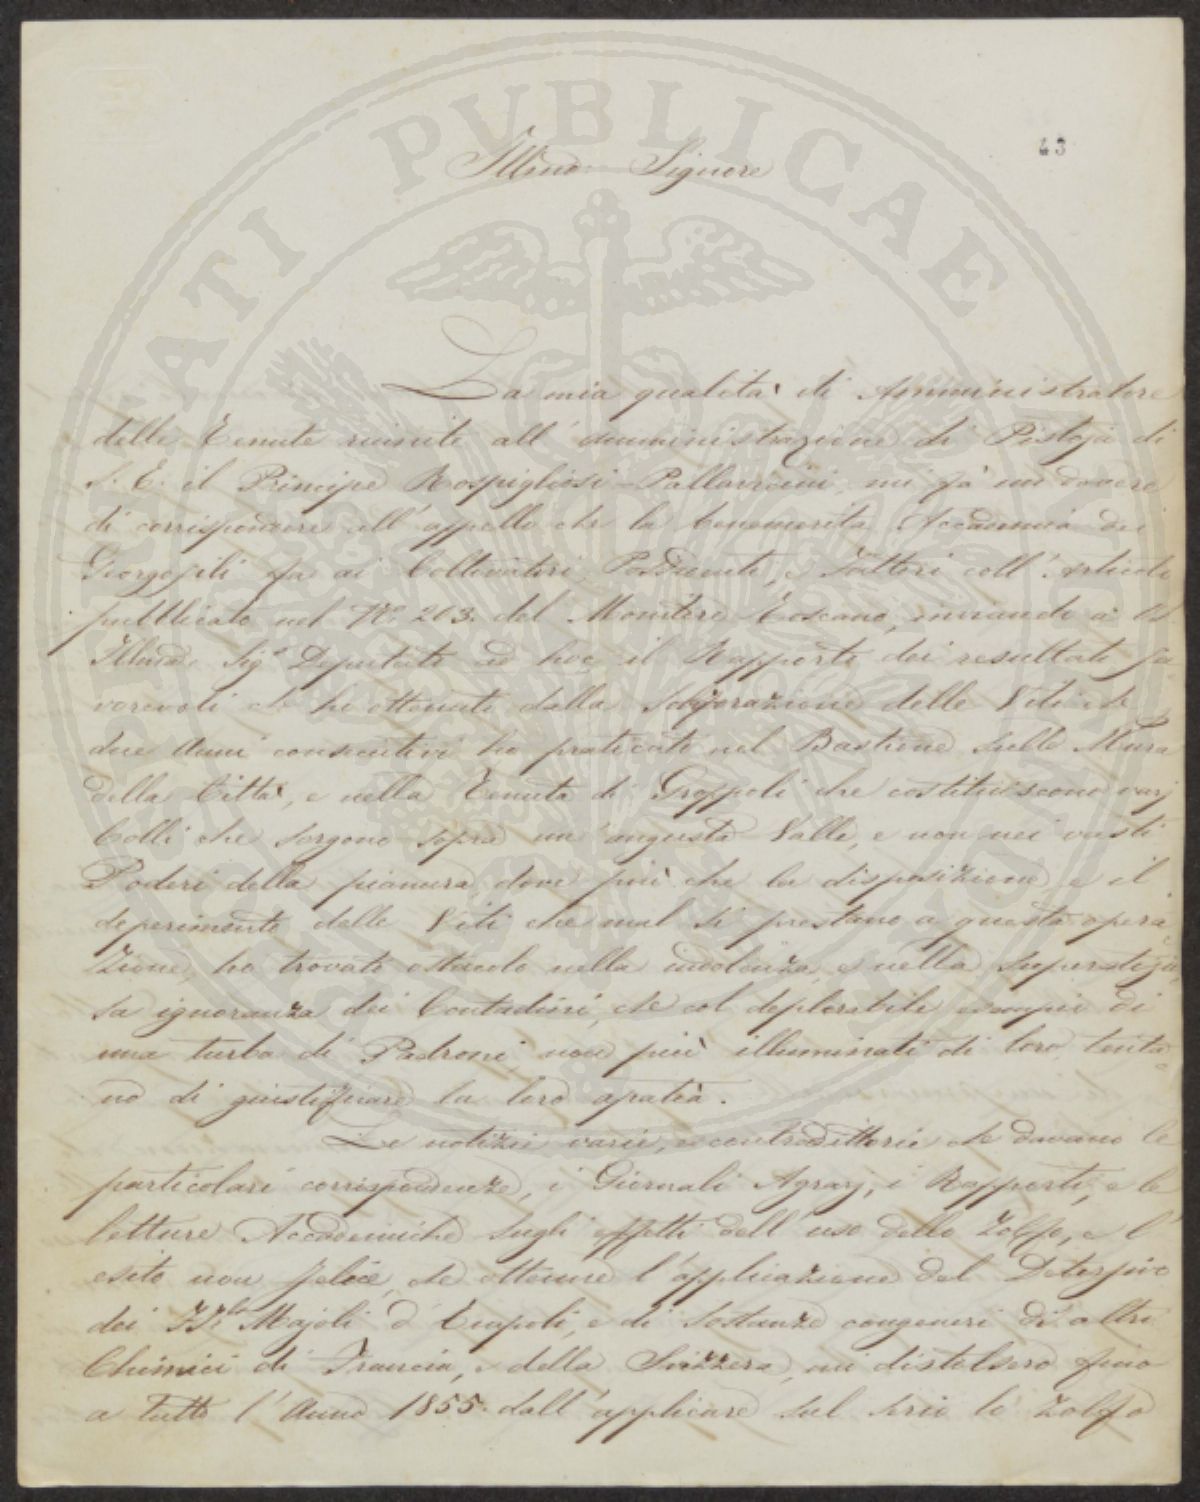 43
Illmo. Signore
La mia qualità di Amministratore
delle Tenute riunite all'amministrazione di Pistoja di
S. E. il Principe Rospigliosi-Pallavicini, mi fà un dovere
di corrispondere all'appello che la benemerita Accademia dei
Georgofili fa ai Coltivatori, Possidenti, e Fattori coll'Articolo
pubblicato nel No. 203. del Monitore Toscano, inviando a
Illmo. Sigr. Deputato ad hoc, il Rapporto dei resultati fa
vorevoli che ho ottenuti dalla Solforazione delle Viti che
due Anni consecutivi ho praticata nel Bastione sulle Mura
della Città, e nella Tenuta di Groppoli che costituiscono varj
Colli che sorgono sopra un'angusta Valle, e non nei vasti
Poderi della pianura, dove più che la disposizione, e il
deperimento delle Viti che mal si prestano a questa opera
zione, ho trovato ostacolo nella indolenza, e nella superstizio
sa ignoranza dei Contadini, che col deplorabile esempio di
una turba di Padroni, non più illuminati di loro, tenta
no di giustificare la loro apatia.
Le notizie varie, e contradittorie che davano le
particolari corrispondenze, i Giornali Agrarj, i Rapporti, e le
letture Accademiche sugli effetti dell'uso dello Zolfo, e l'
esito non felice, che ottenne l'applicazione del
dei Majoli d'Empoli, e di Sostanze congeneri di altri
Chimici di Francia, e della Svizzera, mi distolsero fino
a tutto l'Anno 1855. dall'applicare sul serio lo Zolfo